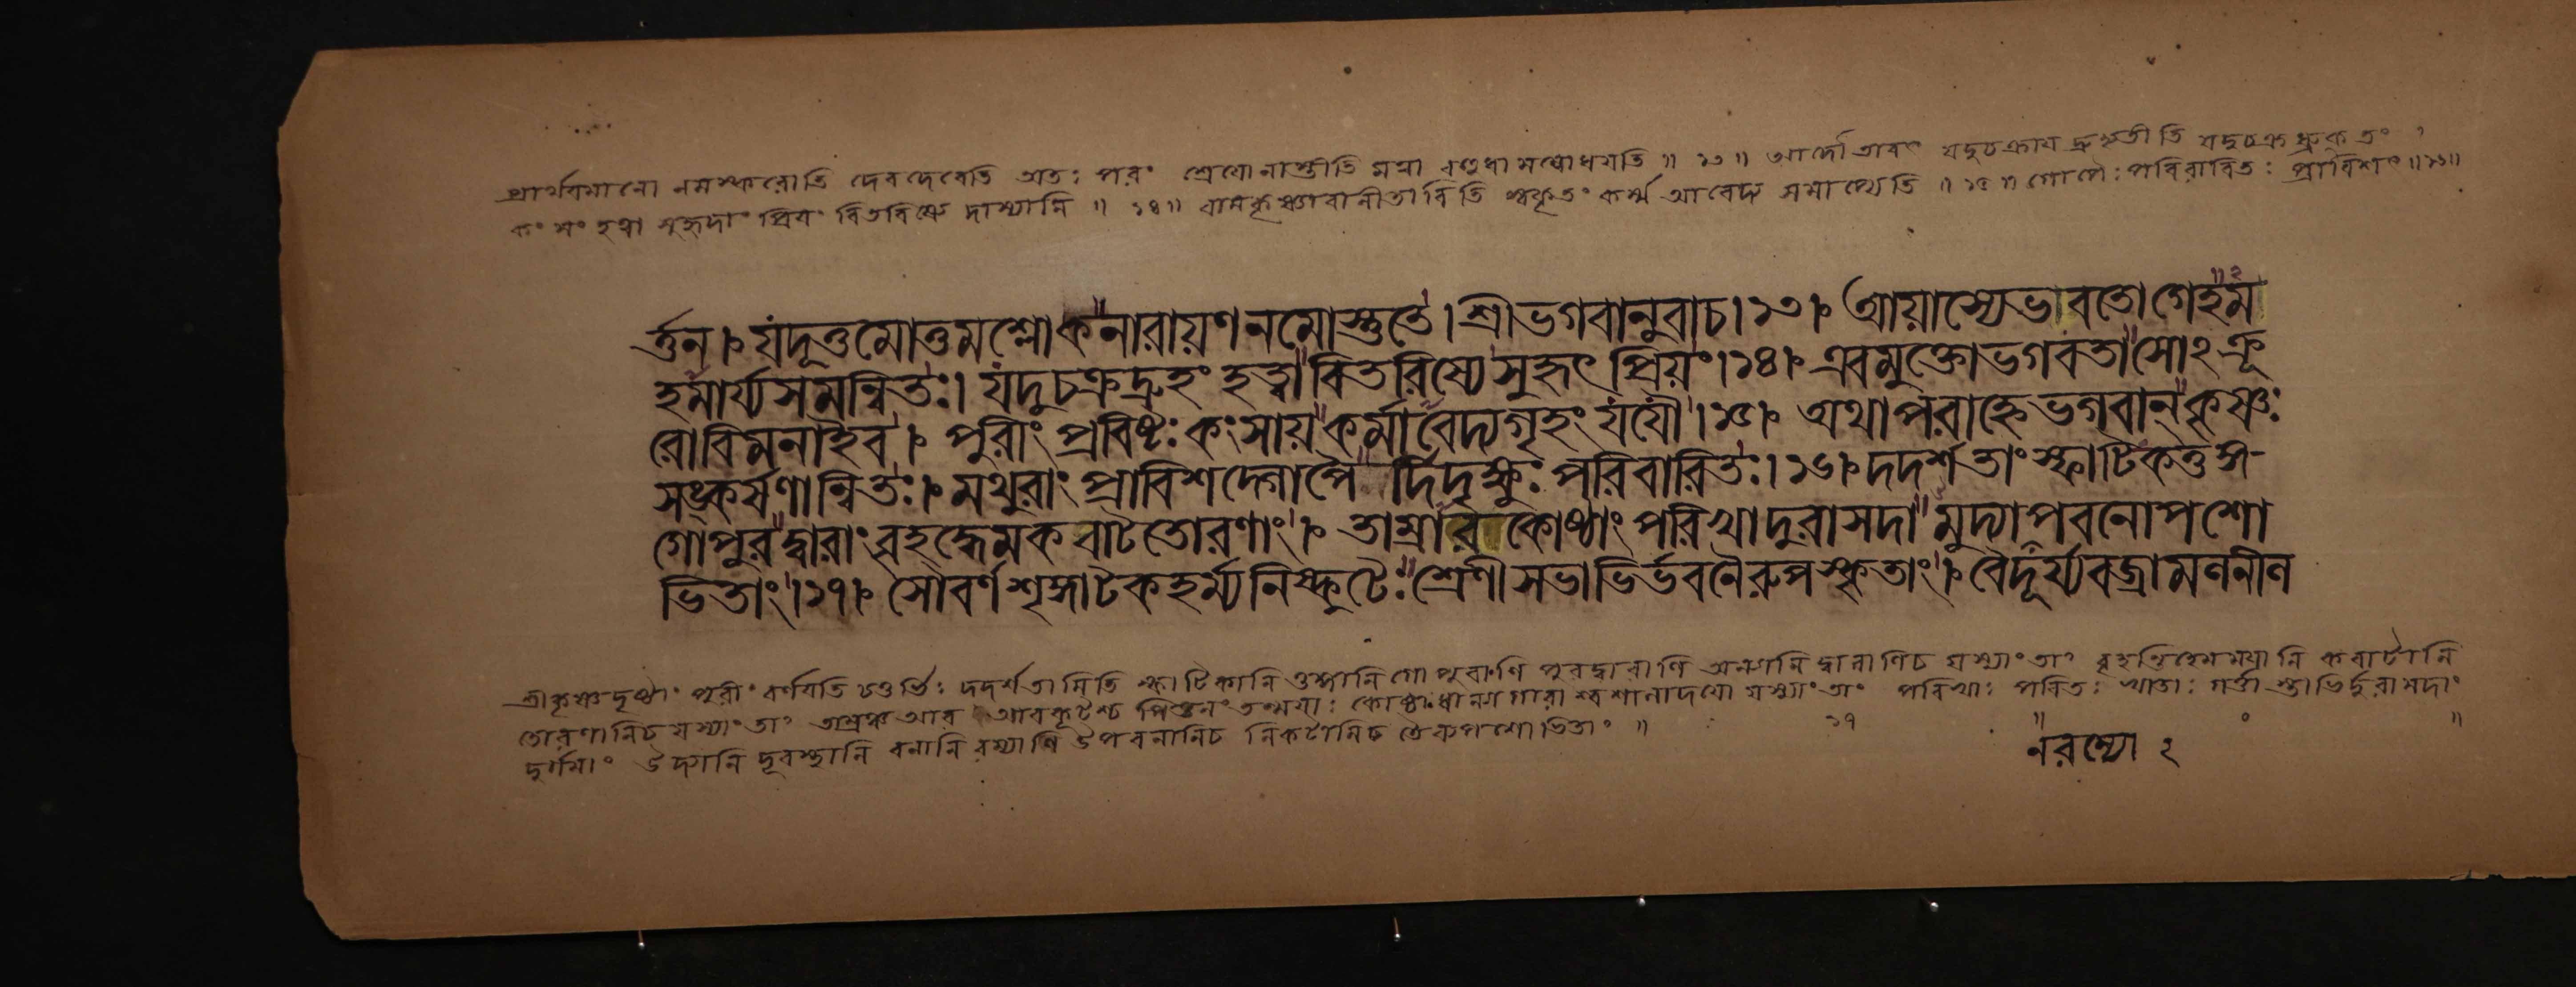 প্রার্থযমানো নমস্করোতি দেবদেবেতি অতঃ পরং শ্রেযোনাস্তীতি মত্বা বহুধা সম্বোধযতি ॥ ১৩ ॥ আদৌ তাবৎ যদুচক্রায দ্রুহ্যতীতি যদুচক্রধ্রুক তং
কংসং হত্বা সুহৃদাং প্রিযং বিতবিষ্যে দাস্যামি ॥ ১৪ ॥ বামকৃষ্ণাবানীতাবিতি স্বকৃতং কর্ম্ম আবেদ্য সমাপ্যেতি ॥ ১৫ ॥ গোপৈঃ পবিবাবিতঃ প্রাবিশৎ ॥ ১৬ ॥
র্ত্তন।৮ যদূত্তমোত্তমশ্লোক নারায়ণ নমোস্তুতে। শ্রীভগবানুবাচ।১৩।৮ আয়াস্যেভাবতোগেহম
হমার্য্যসমন্বিতঃ। যদুচক্রদ্রুহং হত্বা বিতরিষ্যেসুহৃৎ প্রিয়ং।১৪।৮ এবমুক্তোভগবতা সোঽক্রূ
রোবিমনাইব।৮ পুরীং প্রবিষ্টঃ কংসায় কর্মাবেদ্যগৃহং যযৌ।১৫।৮ অথাপরাহ্নেভগবান্ কৃষ্ণঃ
সঙ্কর্ষণান্বিতঃ।৮ মথুরাং প্রাবিশদ্গোপৈ র্দিদৃক্ষুঃ পরিবারিতঃ।১৬।৮ দদর্শতাং স্ফাটিকতুঙ্গ-
গোপুরদ্বারাং বৃহদ্ধেমকবাটতোরণাং।৮ তাম্রারকোষ্ঠাং পরিখাদুরাসদা মুদ্যাপবনোপশো
ভিতাং।১৭।৮ সৌবর্ণশৃঙ্গাটকহর্ম্যনিষ্কুটৈঃ শ্রেণীসভাভির্ভবনৈরুপস্কৃতাং।৮ বৈদূর্য্যবজ্রামণনীণ
শ্রীকৃষ্ণদৃষ্টাং পুরীং বর্ণযতি চতুর্ভিঃ দদর্শতামিতি স্ফাটিকানি তুঙ্গানি গোপুবাণি পুবদ্বাবাণি অন্যানি দ্বাবাণিচ যস্যাং তাং বৃহন্তিহেমমযানি কবাটানি
তোরণানিচ যস্যাং তাং তাম্রঞ্চ আব আবকূটশ্চ পিত্তলং তন্মযাঃ কোষ্ঠাঃ ধান্যাগারাশ্বশালাদযো যস্যাং তাং পবিখাঃ পবিতঃ খাতাঃ গর্ত্তাস্তাভির্দুরাসদাং
দুর্গমাং উদ্যানি দূবস্থানি বনানি রম্যাণি উপবনানিচ নিকটানিচ তৈরুপশোভিতাং ॥ ১৭
নরম্যো ২